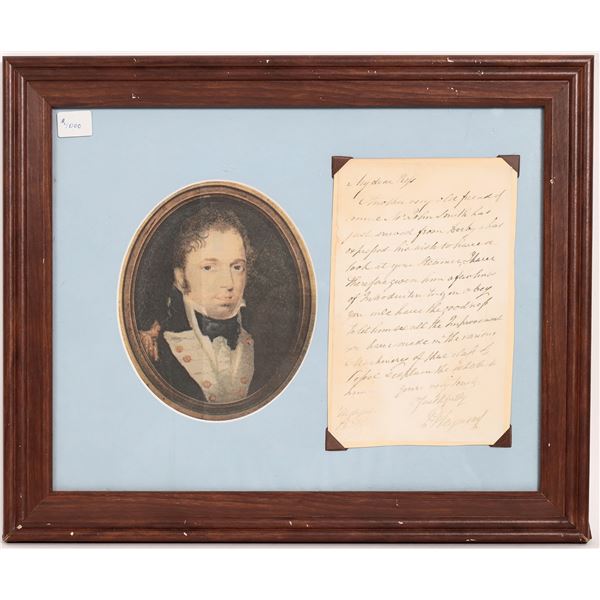 $1000
My dear Rys
Another very old friend of
mine Mr John Smith has
just arrived from Derby & has
expressed his wish to have a
look at your Steamer, I have
therefore given him a few lines
of Introduction to you & beg
you will have the goodness
to let him see all the Improvement
you have made in the various
of that
explain the
him
yours very truly
Faithfully